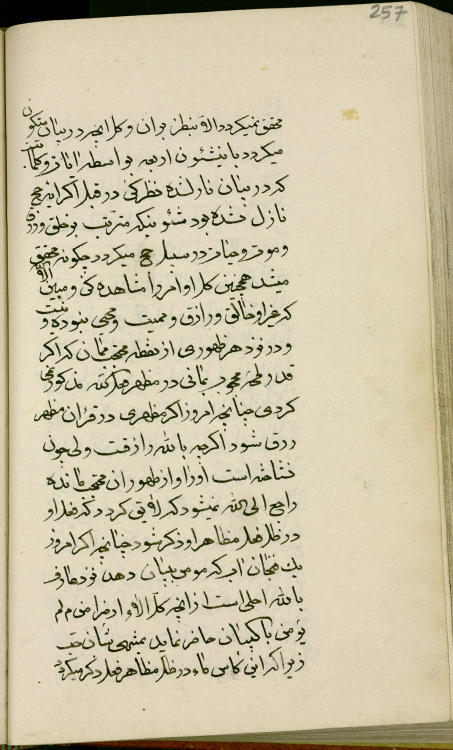 257
محقق نمیگردد الا بنظر بر آن و کل آنچه در بیان متکون
میگردد باینشئون اربعه بواسطه آیات و کلمات
که در بیان نازل شده نظر کن در قبل اگر آیه حج
نازل نشده بود شئونیکه مترتب بر خلق و رزق
و موت و حیات در سبیل حج میگردد چگونه محقق
میشد همچنین کل اوامر را مشاهده کن و مبین
که غیر او خالق و رازق و ممیت و محیی نبوده و نیست
و در نزد هر ظهوری از نقطه محتجب ممان که اگر
قدر لمحه محجوب بمانی در مظهر فعل الله مذکور
گردی چنانچه امروز اگر مظهری در قرآن مظهر
رزق شود اگرچه بالله رازقست ولی چون
نشناخته است او را و از ظهور آن محتجب مانده
راجع الی الله نمیشود که لایق گردد که فعل او
در ظل فعل مظاهر او ذکر شود چنانچه اگر امروز
یک فنجان آب که مؤمن ببیان دهد نزد عارف
بالله احلی است از آنچه کل آلاء ارض را من لم
یؤمن بالبیان حاضر نماید بمنتهی شأن حب
زیرا که این کاس ماء در ظل مظاهر فعل ذکر میگردد